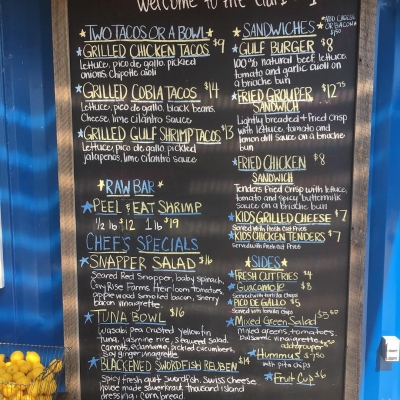 Welcome to the
TWO TACOS OR A BOWL
GRILLED CHICKEN TACOS $9
Lettuce, pico de gallo, pickled
onions, Chipotle aioli
GRILLED COBIA TACOS $14
Lettuce, pico de gallo, black beans,
Cheese, lime cilantro sauce
GRILLED GULF SHRIMP TACOS $13
Lettuce, pico de gallo, pickled
jalapenos, lime cilantro sauce
RAW BAR
PEEL & EAT SHRIMP
1/2 lb $12 1 lb $19
CHEF'S SPECIALS
SNAPPER SALAD $16
Seared Red Snapper, baby spinach,
Rise Farms Heirloom tomatoes,
applewood smoked bacon, sherry
bacon vinaigrette
TUNA BOWL $16
Wasabi pea crusted Yellowfin
tuna, jasmine rice, seaweed salad,
carrots, edamame, pickled cucumbers,
Soy ginger vinaigrette
BLACKENED SWORDFISH REUBEN $14
Spicy fresh gulf swordfish, Swiss Cheese
house made sauerkraut, thousand island
dressing, corn bread
SANDWICHES
ADD CHEESE
OR BACON
$1.50
GULF BURGER $8
100% natural beef, lettuce,
tomato and garlic aioli on
a brioche bun
FRIED GROUPER $12.75
SANDWICH
Lightly breaded & fried Crisp
with lettuce, tomato and
lemon dill sauce on a brioche
bun
FRIED CHICKEN $8
SANDWICH
Tenders Fried Crisp with lettuce,
tomato and spicy buttermilk
sauce on a brioche bun
KIDS GRILLED CHEESE $7
Served with Fresh Cut Fries
KIDS CHICKEN TENDERS $7
Served with Fresh Cut Fries
SIDES
FRESH CUT FRIES $4
Guacamole $8
Served with tortilla chips
PICO DE GALLO $5
Served with tortilla chips
Mixed Green Salad
Mixed greens, tomatoes,
Balsamic vinaigrette
Hummus $7.50
with pita chips
Fruit Cup $6